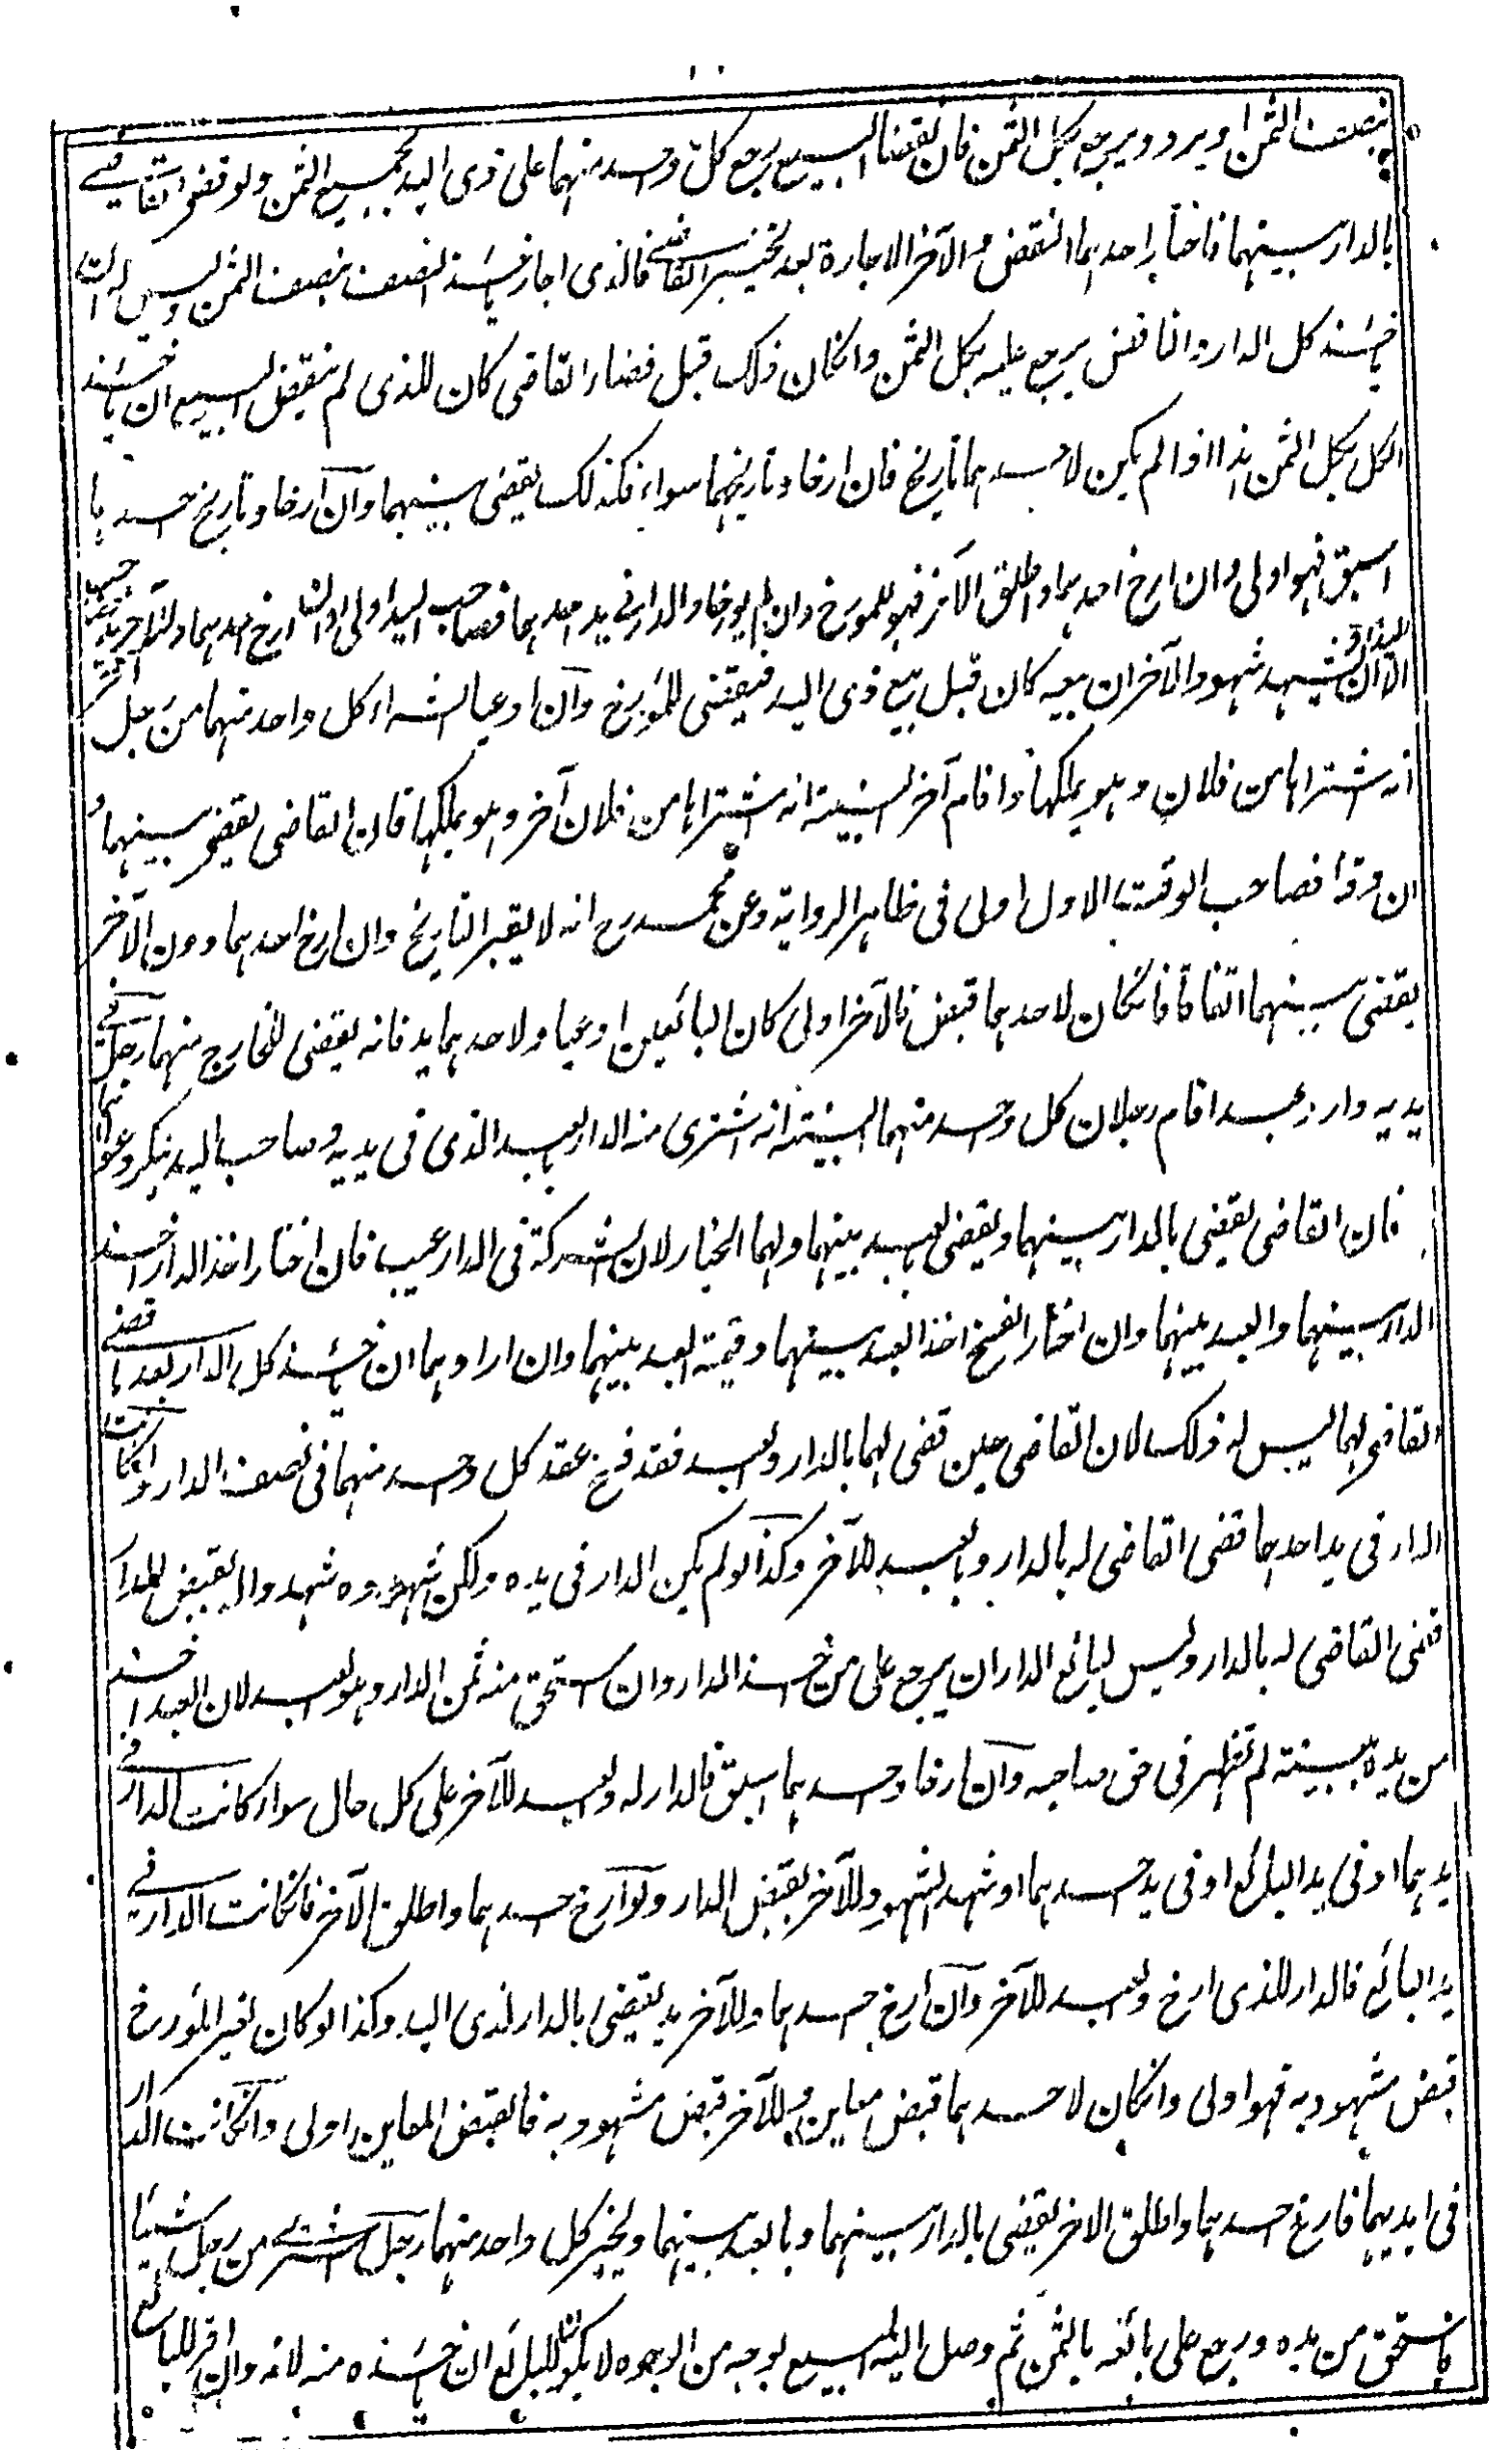 بنصف الثمن او يرد ويرجع بكل الثمن فان نقضا البيع يرجع كل واحد منهما على ذى اليد بجميع الثمن ولو قضى القاضى
بالدار بينهما فاختار احدهما النقض والآخر الاجازة بعد تخيير القاضى فالذى اجاز ياخذ النصف بنصف الثمن وليس له ان
ياخذ كل الدار والناقض يرجع عليه بكل الثمن وانكان ذلك قبل قضاء القاضى كان للذى لم ينقض البيع ان ياخذ
الكل بكل الثمن هذا اذا لم يكن لاحدهما تاريخ فان ارخا وتاريخهما سواء فكذلك يقضى بينهما وان ارخا وتاريخ احدهما
اسبق فهو اولى وان ارخ احدهما واطلق الآخر فهو للمورخ وان لم يورخا والدار فى يد احدهما فصاحب اليد اولى وان ارخ احدهما وللآخر يد
الا ان يشهد شهود الآخر ان بيعه كان قبل بيع ذى اليد فيقضى للمورخ وان ادعيا الشراء كل واحد منهما من رجل
انه اشتراها من فلان وهو يملكها واقام آخر البينة انه اشتراها من فلان آخر وهو يملكها فان القاضى يقضى بينهما و
ان وقتا فصاحب الوقت الاول اولى فى ظاهر الرواية وعن محمد رح انه لا يعتبر التاريخ وان ارخ احدهما دون الآخر
يقضى بينهما اتفاقا فانكان لاحدهما قبض فالآخر اولى كان البائعين ادعيا ولاحدهما يد فانه يقضى للخارج منهما رجل فى
يديه دار وعبد اقام رجلان كل واحد منهما البينة انه اشترى منه الدار بالعبد الذى فى يديه وصاحب اليد ينكر دعواهما
فان القاضى يقضى بالدار بينهما ويقضى بالعبد بينهما ولهما الخيار لان الشركة فى الدار عيب فان اختار اخذ الدار اخذ
الدار بينهما والعبد بينهما وان اختار الفسخ اخذ العبد بينهما وقيمة العبد بينهما وان اراد احدهما ان ياخذ كل الدار بعد ما قضى
القاضى لهما ليس له ذلك لان القاضى حين قضى لهما بالدار والعبد فقد فسخ عقد كل واحد منهما فى نصف الدار وان كانت
الدار فى يد احدهما قضى القاضى له بالدار وبالعبد للآخر وكذا لو لم يكن الدار فى يده ولكن شهوده شهدوا له بقبض الدار
قضى القاضى له بالدار وليس لبائع الدار ان يرجع على من اخذ الدار وان استحق منه ثمن الدار وهو العبد لان العبد اخذ
من يده ببينة لم تظهر فى حق صاحبه وان ارخا واحدهما اسبق فالدار له والعبد للآخر على كل حال سواء كانت الدار فى
يدهما او فى يد البائع او فى يد احدهما او شهد الشهود للآخر بقبض الدار ولو ارخ احدهما واطلق الآخر فانكانت الدار فى
يد البائع فالدار للذى ارخ والعبد للآخر وان ارخ احدهما وللآخر يد يقضى بالدار لذى اليد وكذا لو كان لغير المورخ
قبض مشهود به فهو اولى وانكان لاحدهما قبض معاين وللآخر قبض مشهود به فالقبض المعاين اولى وانكانت الدار
فى ايديهما فارخ احدهما واطلق الاخر يقضى بالدار بينهما وبالعبد بينهما ويخير كل واحد منهما رجل اشترى من رجل شيئا
فاستحق من يده ورجع على بائعه بالثمن ثم وصل اليه المبيع بوجه من الوجوه لا يكون للبائع ان ياخذه منه لانه وان اقر للبائع